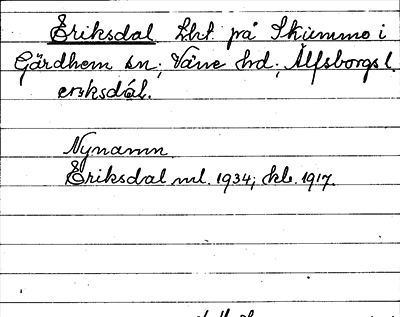 Eriksdal Lht. på Skummo i
Gärdhem sn; Väne hd; Älfsborgs l.
eriksdál.
Nynamn.
Eriksdal ml. 1934; kb. 1917.